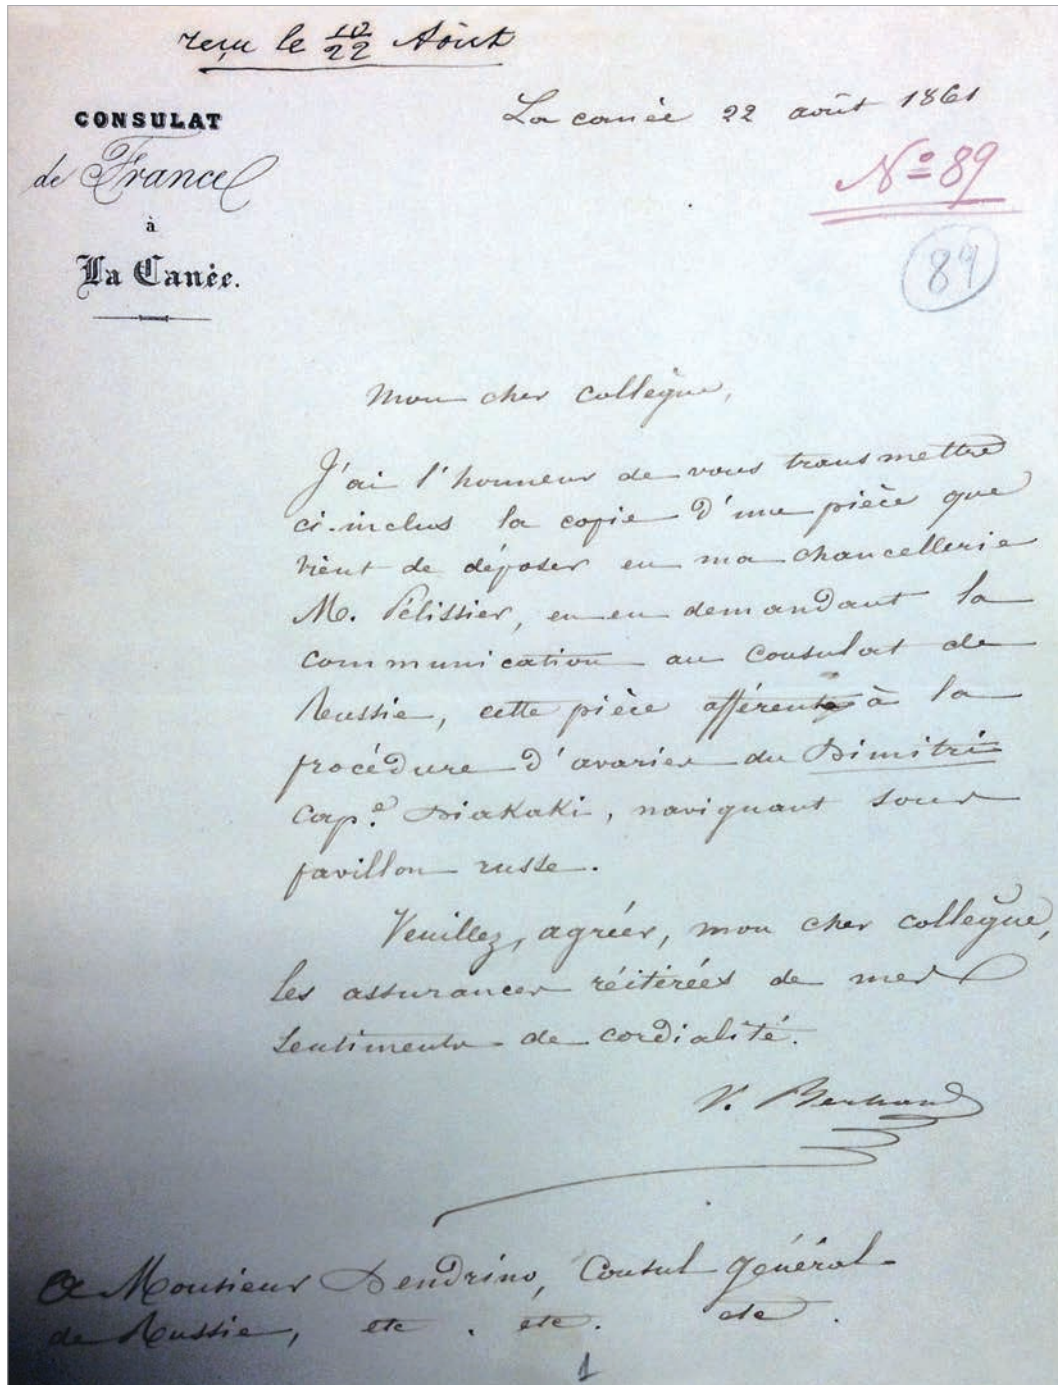 reçu le 10/22 Août
CONSULAT
de France
à
La Canée.
La canée 22 août 1861
Nº 89
mon cher collègue,
J'ai l'honneur de vous transmettre
ci-inclus la copie d'une pièce que
vient de déposer en ma chancellerie
M. Pélissier, en en demandant la
communication au consulat de
Russie, cette pièce afférente à la
procédure d'avaries du Dimitri
Cap.e Diakaki, naviguant sous
pavillon russe.
Veuillez, agréer, mon cher collègue,
les assurances réitérées de mes
sentiments de cordialité.
V.
A Monsieur Dendrino, Consul général
de Russie, etc. etc. etc.
1